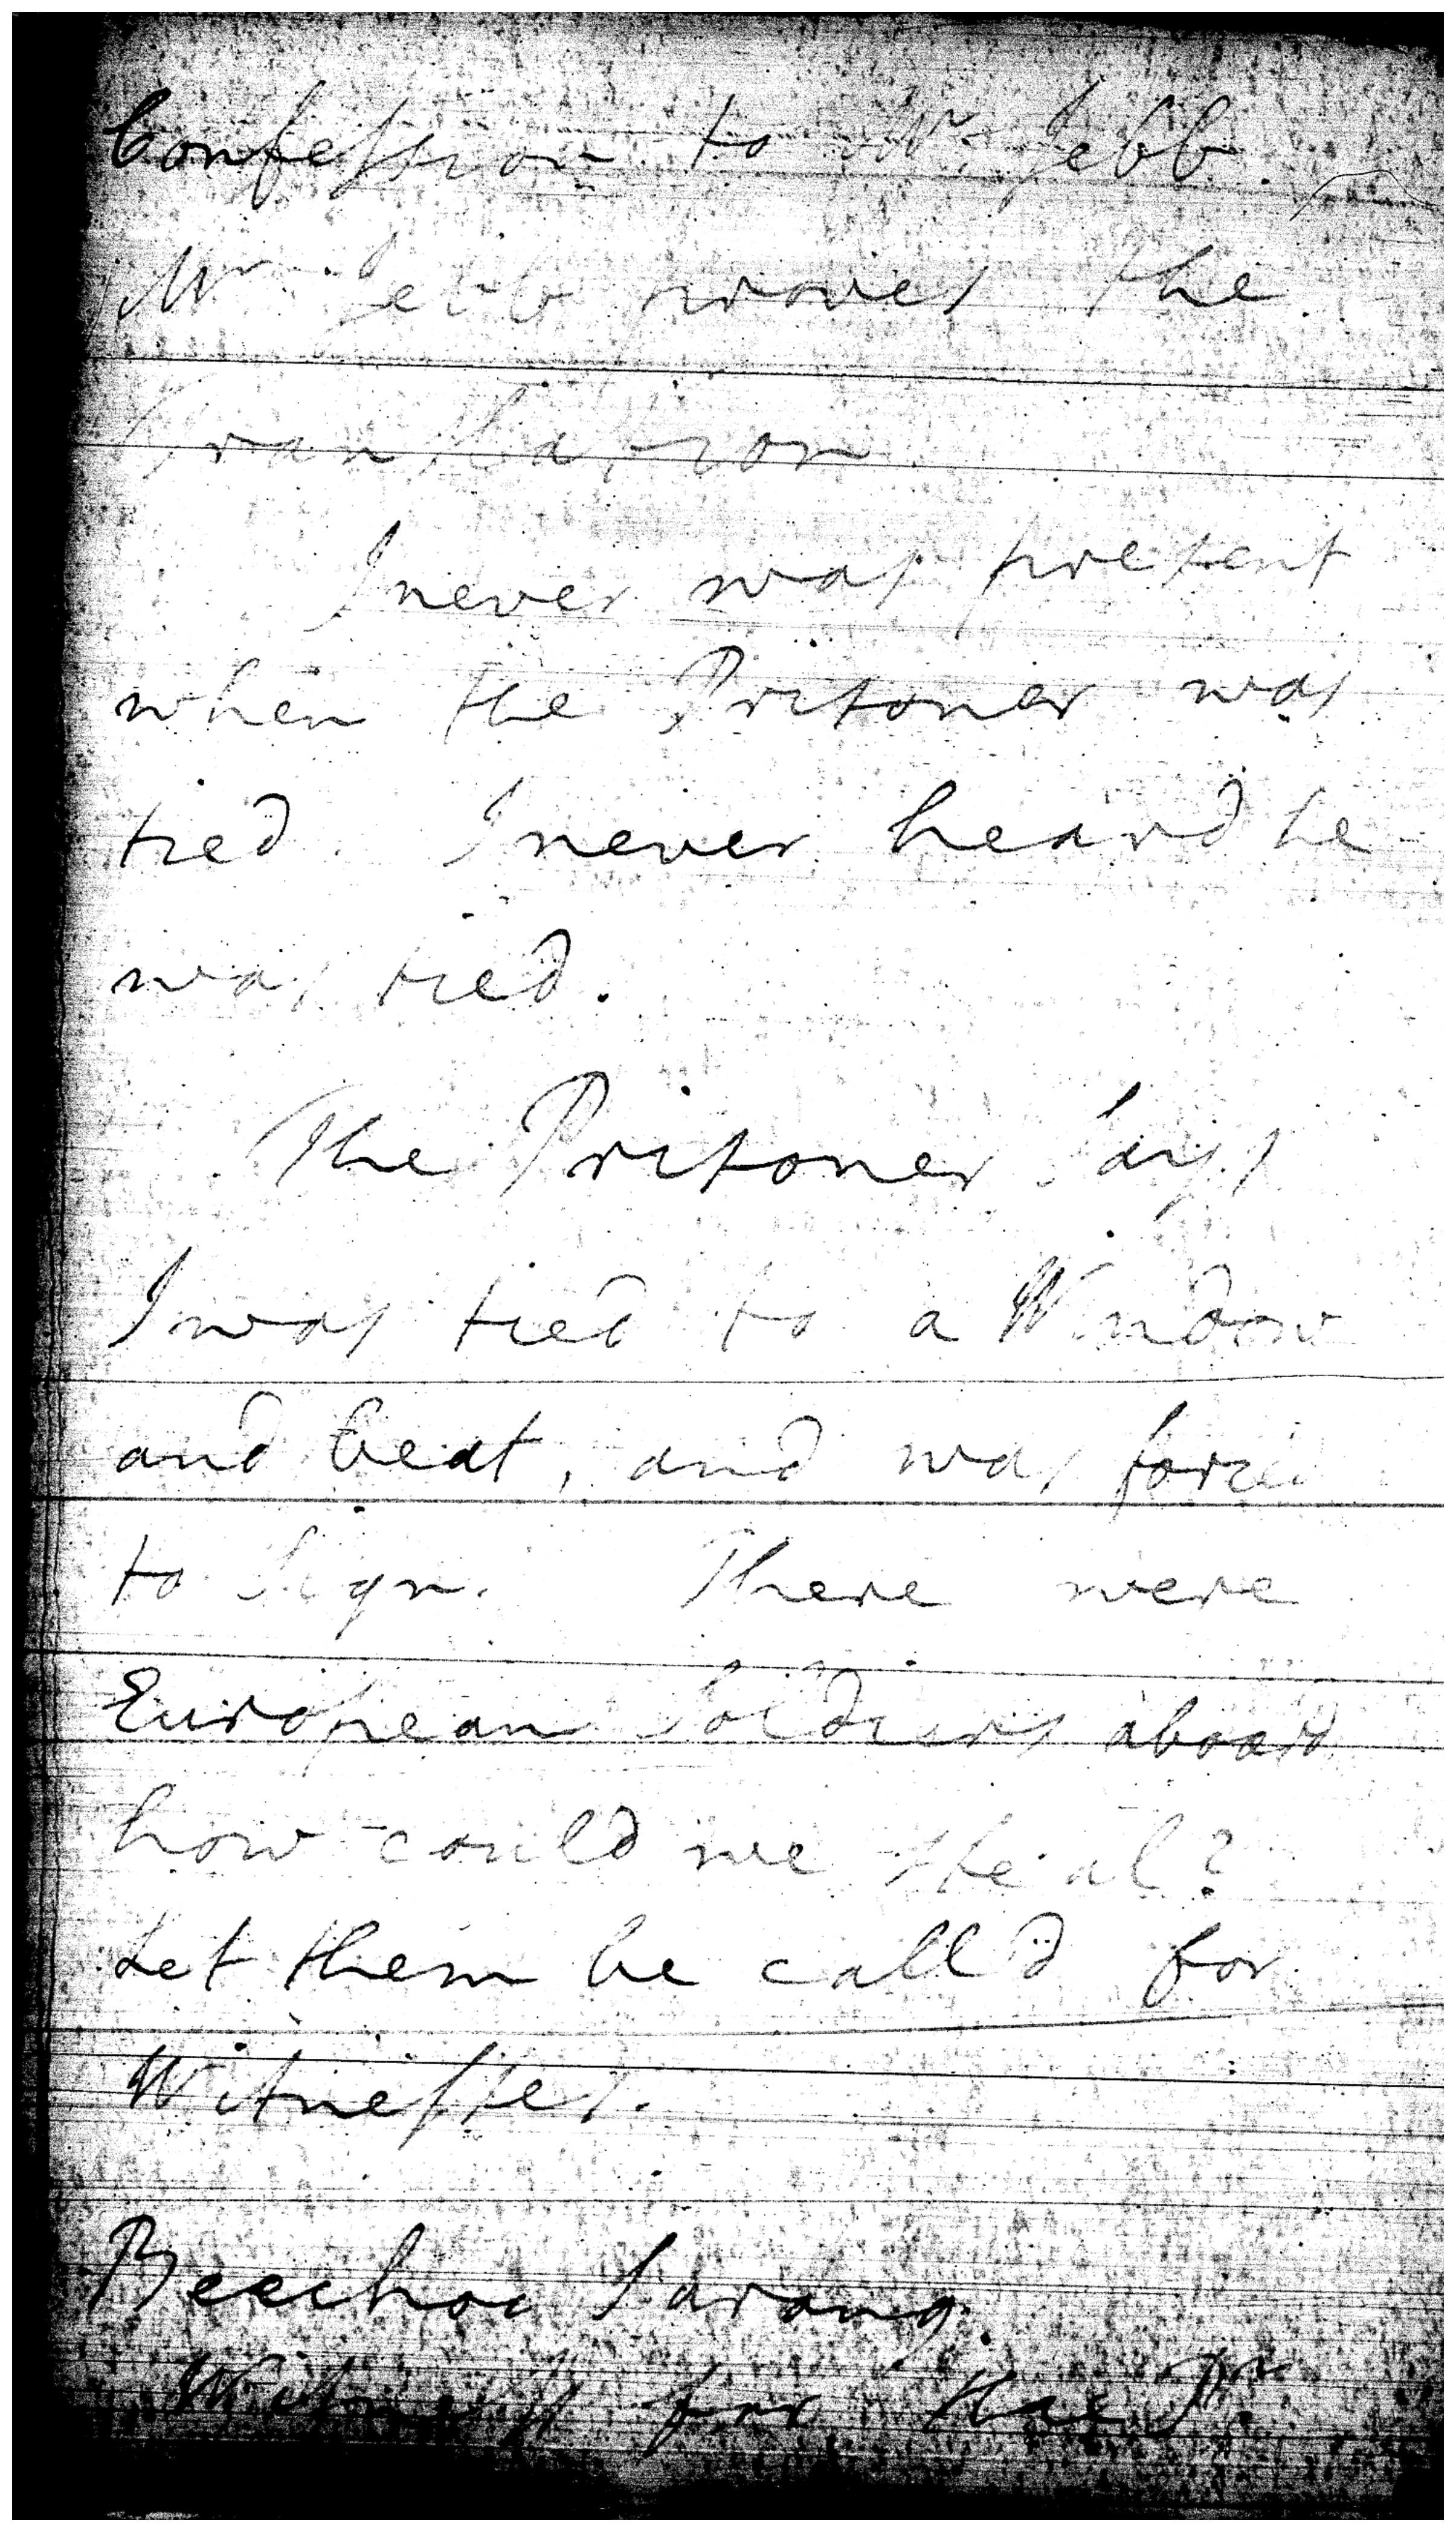 Confession to Mr. Jebb.
Mr Jebb proves the
Translation
I never was present
when the Prisoner was
tied. I never heard he
was tied.
The Prisoner Says
I was tied to a Window
and beat, and was forced
to Sign. There were
European Soldiers aboard
how could we steal?
Let them be call'd for
Witnesses.
Beechoo Sarang.
Witness for the Pr.